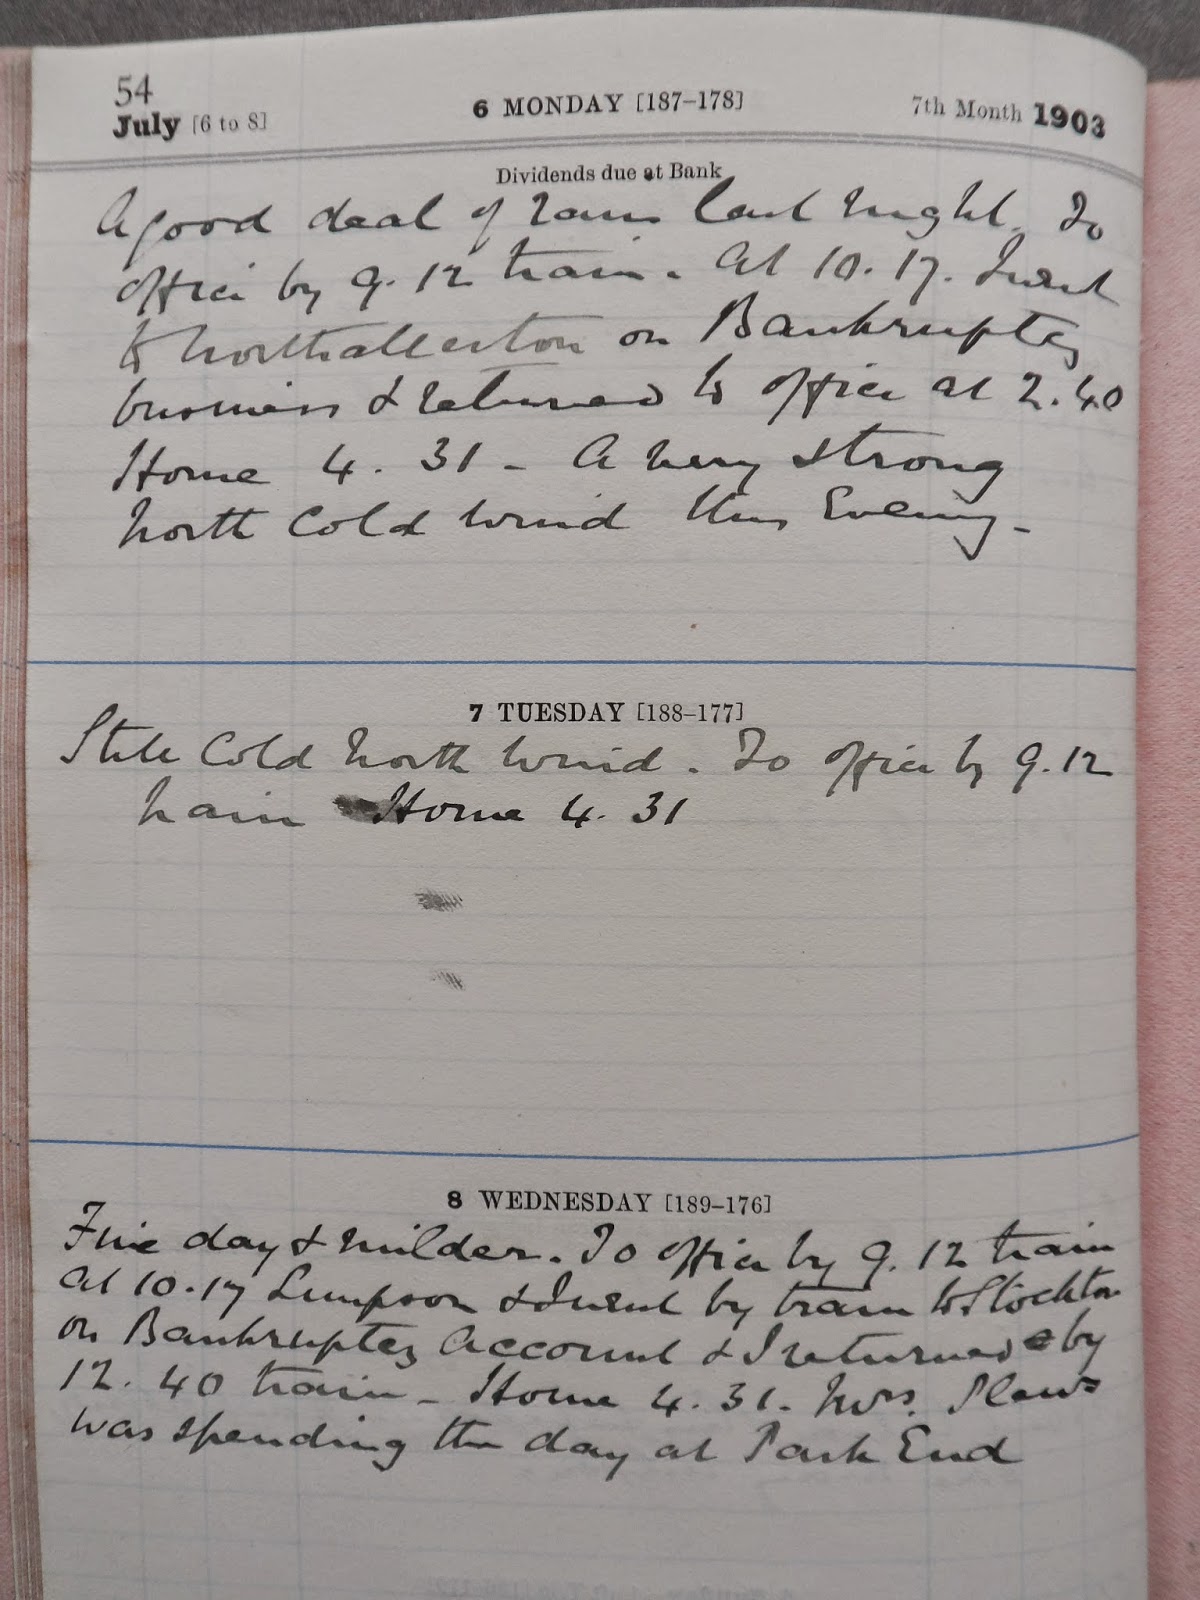 54
July [6 to 8]
6 MONDAY [187–178]
7th Month 1903
Dividends due at Bank
A good deal of rain last night. To
office by 9.12 train. At 10.17. I went
to Northallerton on Bankruptcy
business & returned to office at 2.40
Home 4.31 – A very strong
North Cold wind this Evening –
7 TUESDAY [188–177]
Still Cold North wind. To office by 9.12
train Home 4.31
8 WEDNESDAY [189–176]
Fine day & milder. To office by 9.12 train
At 10.17 & I went by train to Stockton
on Bankruptcy Account & I returned by
12.40 train – Home 4.31. Mrs.
was spending the day at Park End